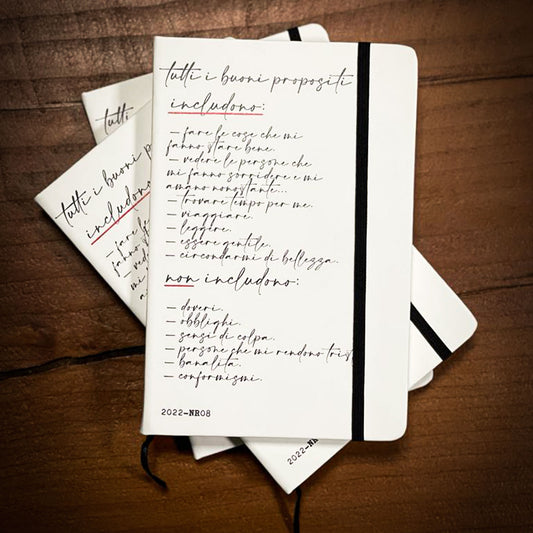 tutti i buoni propositi
includono:
– fare le cose che mi
fanno stare bene.
– vedere le persone che
mi fanno sorridere e mi
amano nonostante...
– trovare tempo per me.
– viaggiare.
– leggere.
– essere gentile.
– circondarmi di bellezza.
non includono:
– doveri.
– obblighi.
– sensi di colpa.
– persone che mi rendono trist
– banalità.
– conformismi.
2022-NR08
tutti
tutti i buoni p
includono
– fare
fanno
– ved
mi
a
2022-N